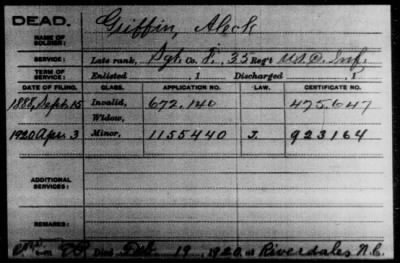 DEAD. Griffin, Aleck
NAME OF SOLDIER:
SERVICE: Late rank, Sgt. Co. I, 35 Reg't U.S.C. Inf.
TERM OF SERVICE: Enlisted , 1 Discharged , 1
DATE OF FILING. CLASS. APPLICATION NO. LAW. CERTIFICATE NO.
1888, Sept. 15 Invalid, 672,140 475,647
Widow,
1920 Apr. 3 Minor, 1155440 J. 923164
ADDITIONAL SERVICES:
REMARKS:
Died Feb. 19, 1920, at Riverdale, N.C.